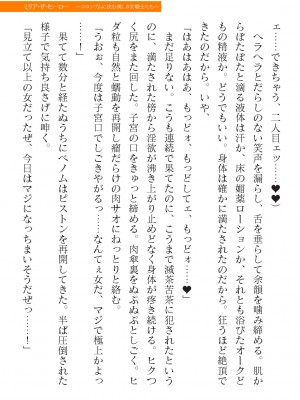 ェ……できちゃう、二人目ェッ……♥♥」
　ヘラヘラとだらしのない笑声を漏らし、舌を垂らして余韻を噛み締める。肌か
らぽたぽたと滴る液体は汗か、床の媚薬ローションか、それとも浴びたオークど
もの精液か。どうでもいい。身体は確かに満たされたのだから。狂うほど絶頂で
きたのだから。いや、
「はあはあはあ、もっどぉ、もっどしてェ、もっどォ……♥」
　まだ足りない。こうも連続で果てたのに、こうまで滅茶苦茶に犯されたという
のに、満たされた傍から淫欲が沸き上がり止めどなく身体が疼き続ける。ヒクつ
く尻をまた回した。子宮の口をきゅっと締める。肉傘裏をぬぷぬぷとしごく。ヒ
ダ粒も自然と蠕動を再開し瘤だらけの肉サオにねっとりと絡む。
「うおぉ、今度は子宮口でしごきやがるっ……なんてぇ女だ、マジで極上かよっ」
　果てて数分と経たぬうちにベノムはピストンを再開してきた。半ば圧倒された
様子で気持ち良さげに呻く。
「見立て以上の女だったぜ、今日はマジになっちまいそうだぜっ……！」